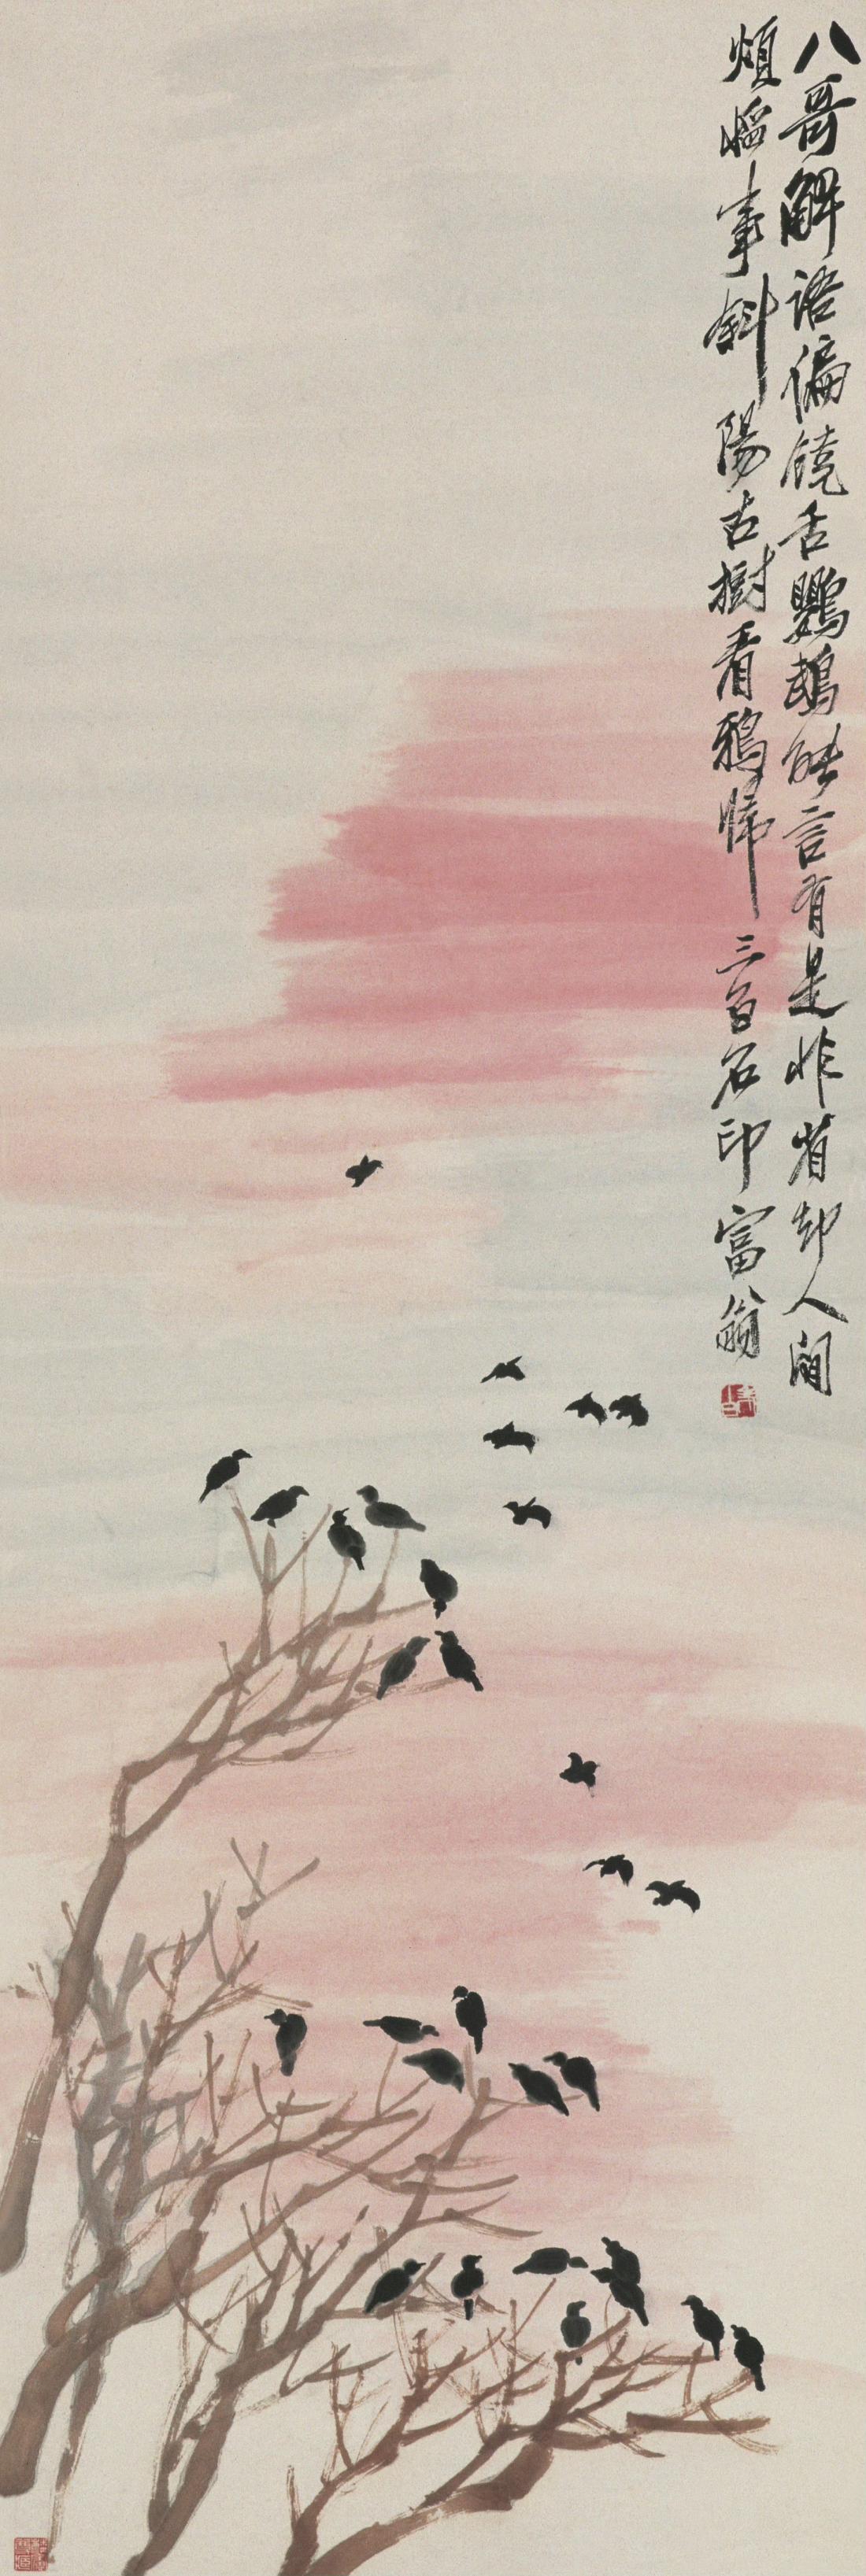 八哥解语偏饶舌鹦鹉能言有是非省却人间
烦恼事斜阳古树看鸦归三百石印富翁